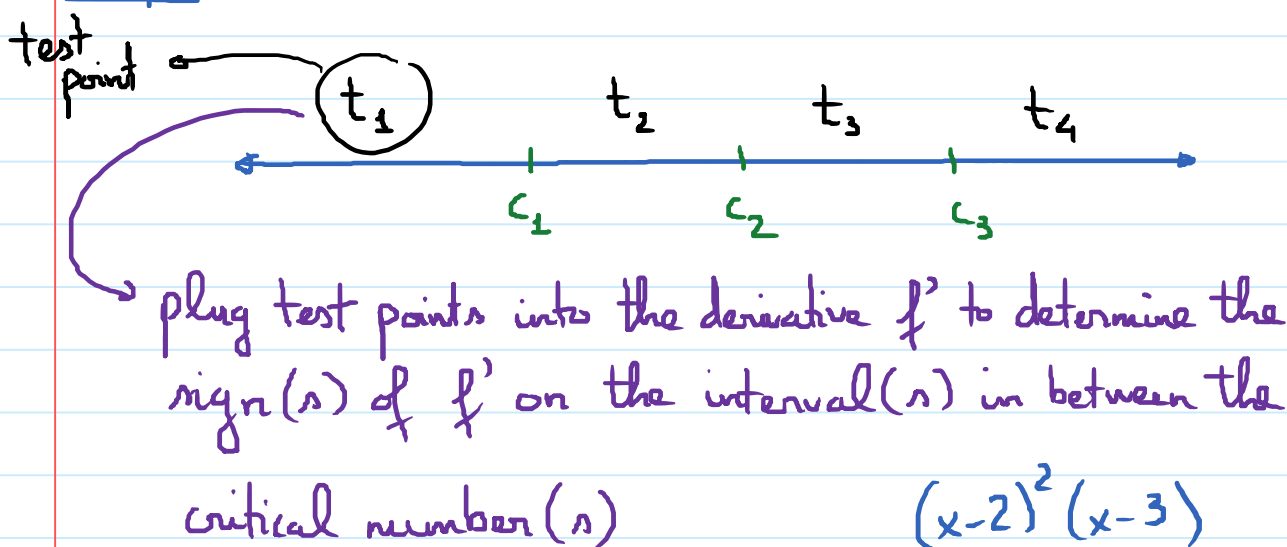 test
point
t₁ t₂ t₃ t₄
c₁ c₂ c₃
plug test points into the derivative f' to determine the
sign(s) of f' on the interval(s) in between the
critical number(s) (x-2)² (x-3)